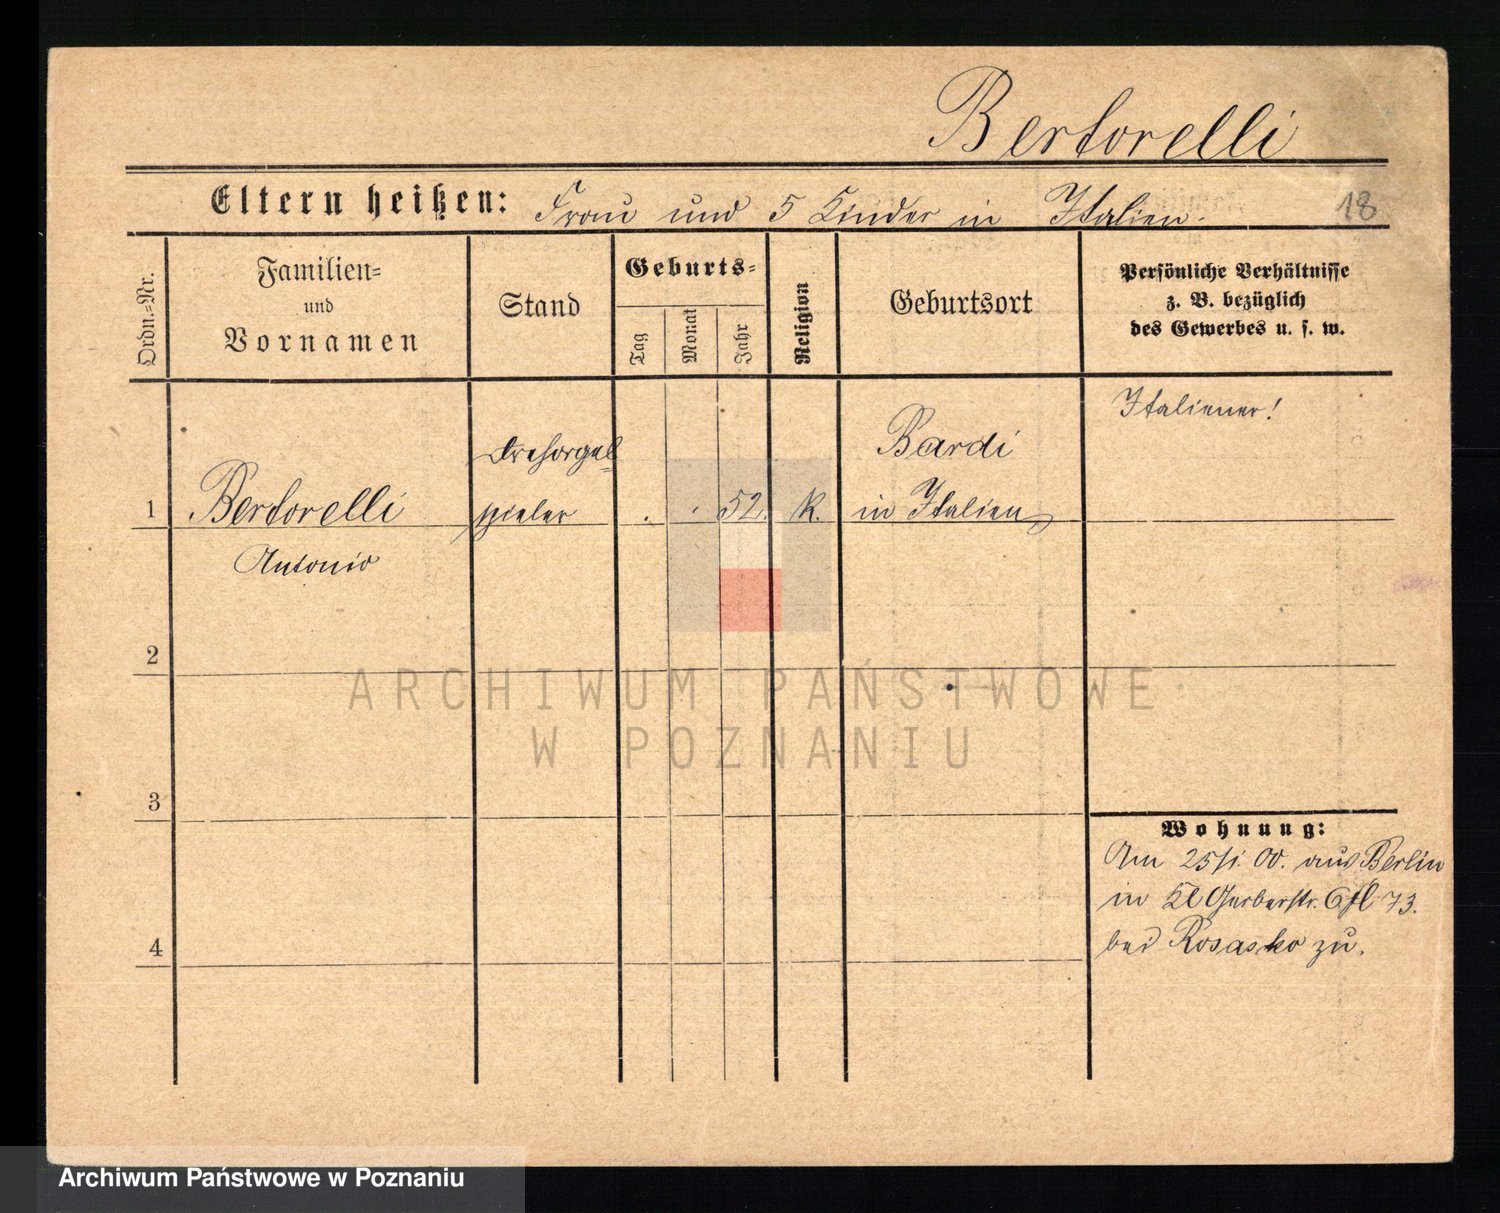 Bertorelli
Eltern heißen: Frau und 5 Kinder in Italien.
18
Ordn.-Nr.
Familien-
und
Vornamen
Stand
Geburts-
Tag
Monat
Jahr
Religion
Geburtsort
Persönliche Verhältnisse
z. B. bezüglich
des Gewerbes u. s. w.
Italiener!
Drehorgel
Bardi
1 Bertorelli spieler . . 52. k. in Italien
Antonio
2
ARCHIWUM PAŃSTWOWE
W POZNANIU
3
Wohnung:
Am 25/1. 00. aus Berlin
in Kl Gerberstr. 73.
4
bei Rosasko zu.
Archiwum Państwowe w Poznaniu